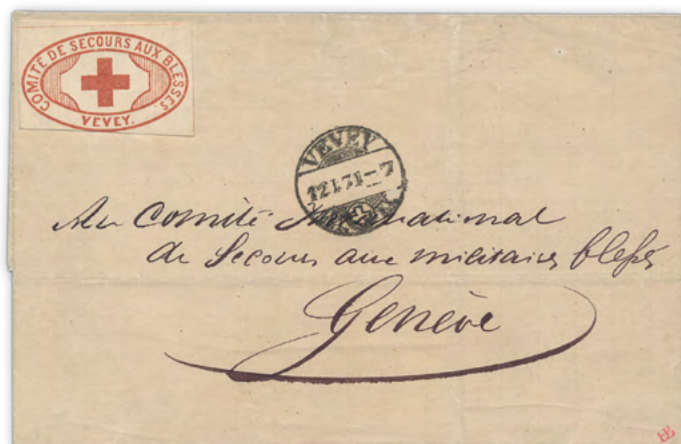 COMITÉ DE SECOURS AUX BLESSÉS.
VEVEY.
VEVEY
12 I 71 – 7
Au Comité International
de Secours aux militaires blessés
Genève